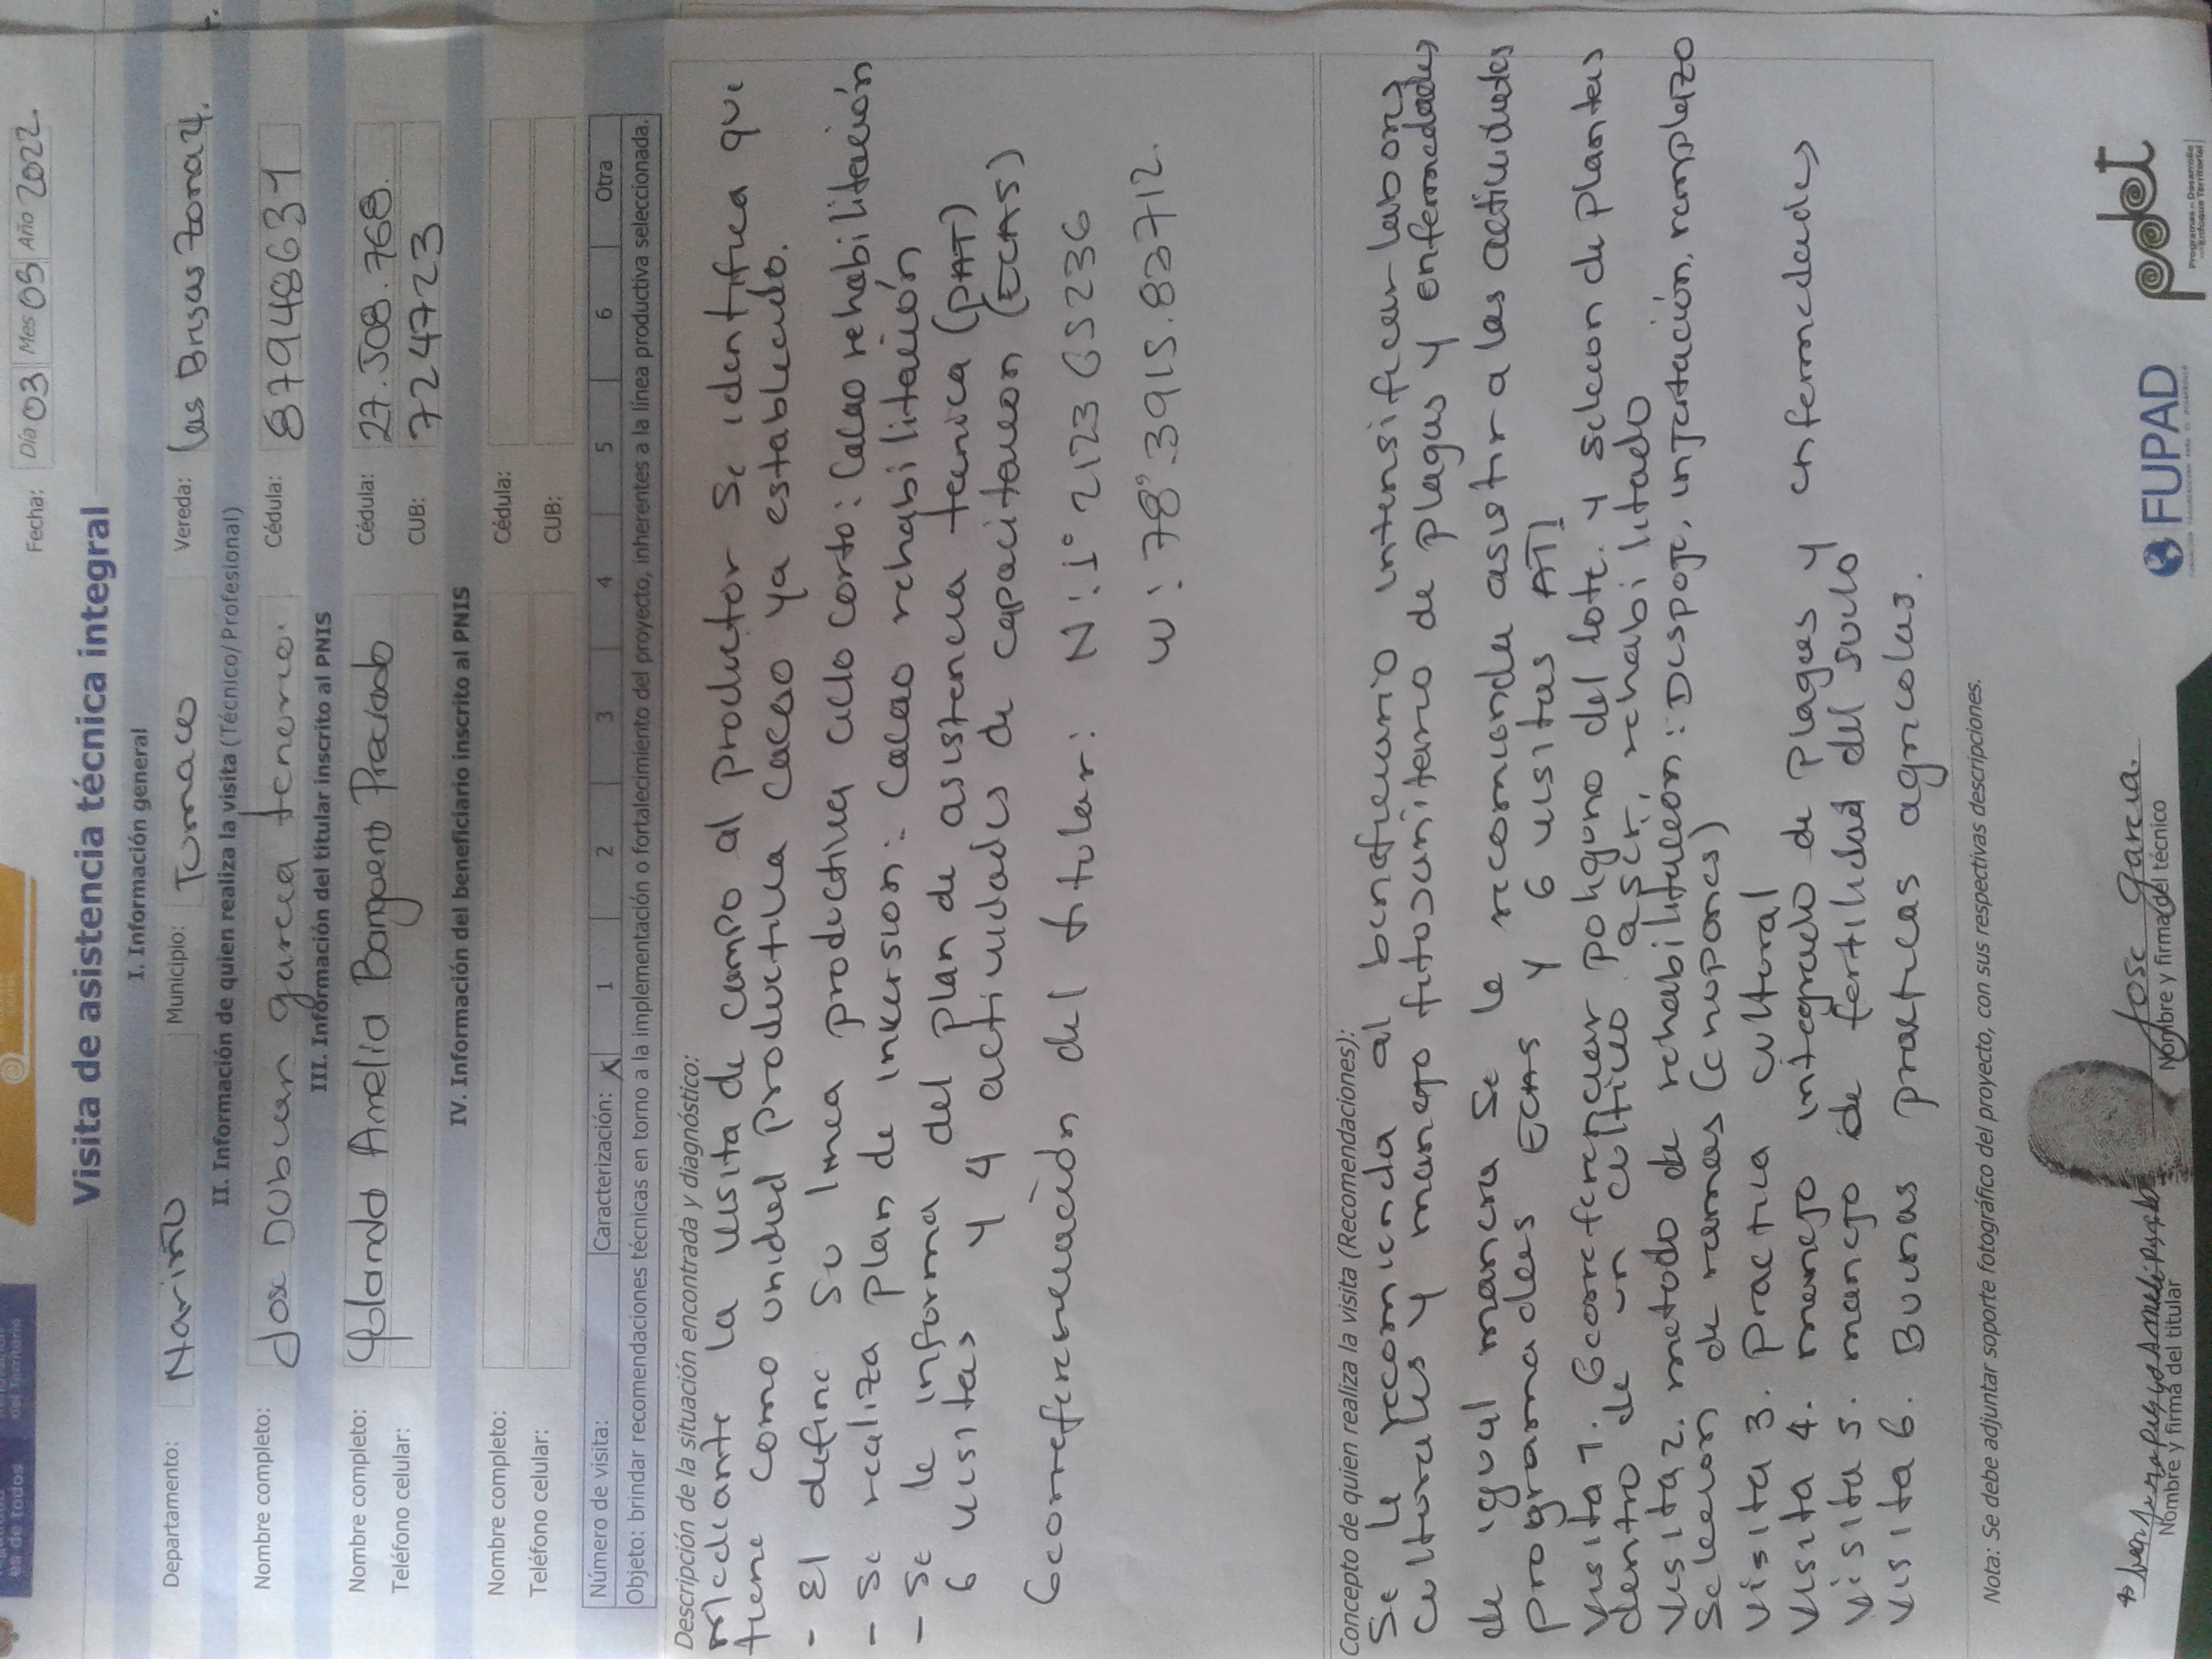 es de todos
del Territorio
Fecha: Día 03 Mes 03 Año 2022.
Visita de asistencia técnica integral
I. Información general
Departamento: Nariño Municipio: Tumaco Vereda: las Brisas Zona 4.
II. Información de quien realiza la visita (Técnico/Profesional)
Nombre completo: Jose Dubuan garcia tenorio. Cédula: 87948631
III. Información del titular inscrito al PNIS
Nombre completo: Yolanda Amelia Banguera Preciado Cédula: 27.508.768.
Teléfono celular: CUB: 724723
IV. Información del beneficiario inscrito al PNIS
Nombre completo: Cédula:
Teléfono celular: CUB:
Número de visita: Caracterización: X 1 2 3 4 5 6 Otra
Objeto: brindar recomendaciones técnicas en torno a la implementación o fortalecimiento del proyecto, inherentes a la línea productiva seleccionada.
Descripción de la situación encontrada y diagnóstico:
Mediante la visita de campo al productor se identifica que
tiene como unidad productiva cacao ya establecido.
- El define su linea productiva ciclo corto: Cacao rehabilitación
- Se realiza plan de inversion: Cacao rehabilitación
- Se le informa del plan de asistencia tecnica (PAT)
6 visitas y 4 actividades de capacitacion (ECAS)
Georreferenciación del titular: N: 1° 2123 65236
W: 78°.3915.83712.
Concepto de quien realiza la visita (Recomendaciones):
Se le recomienda al beneficiario intensificar labores
culturales y manejo fitosanitario de plagas y enfermedades
de igual manera se le recomienda asistir a las actividades
programadas ECAS y 6 visitas ATI
Visita 1. Georreferenciar poligono del lote. y seleccion de plantas
dentro de un cultivo a ser rehabilitado
Visita 2. metodo de rehabilitacion: Despoje, injertación, remplazo
Seleccion de ramas (chupones)
Visita 3. Practica cultural
Visita 4. manejo integrado de Plagas y enfermedades
Visita 5. manejo de fertilidad del suelo
Visita 6. Buenas practicas agricolas.
Nota: Se debe adjuntar soporte fotográfico del proyecto, con sus respectivas descripciones.
Nombre y firma del titular
Jose garcia.
Nombre y firma del técnico
FUPAD
pdet
Programas de Desarrollo
con Enfoque Territorial